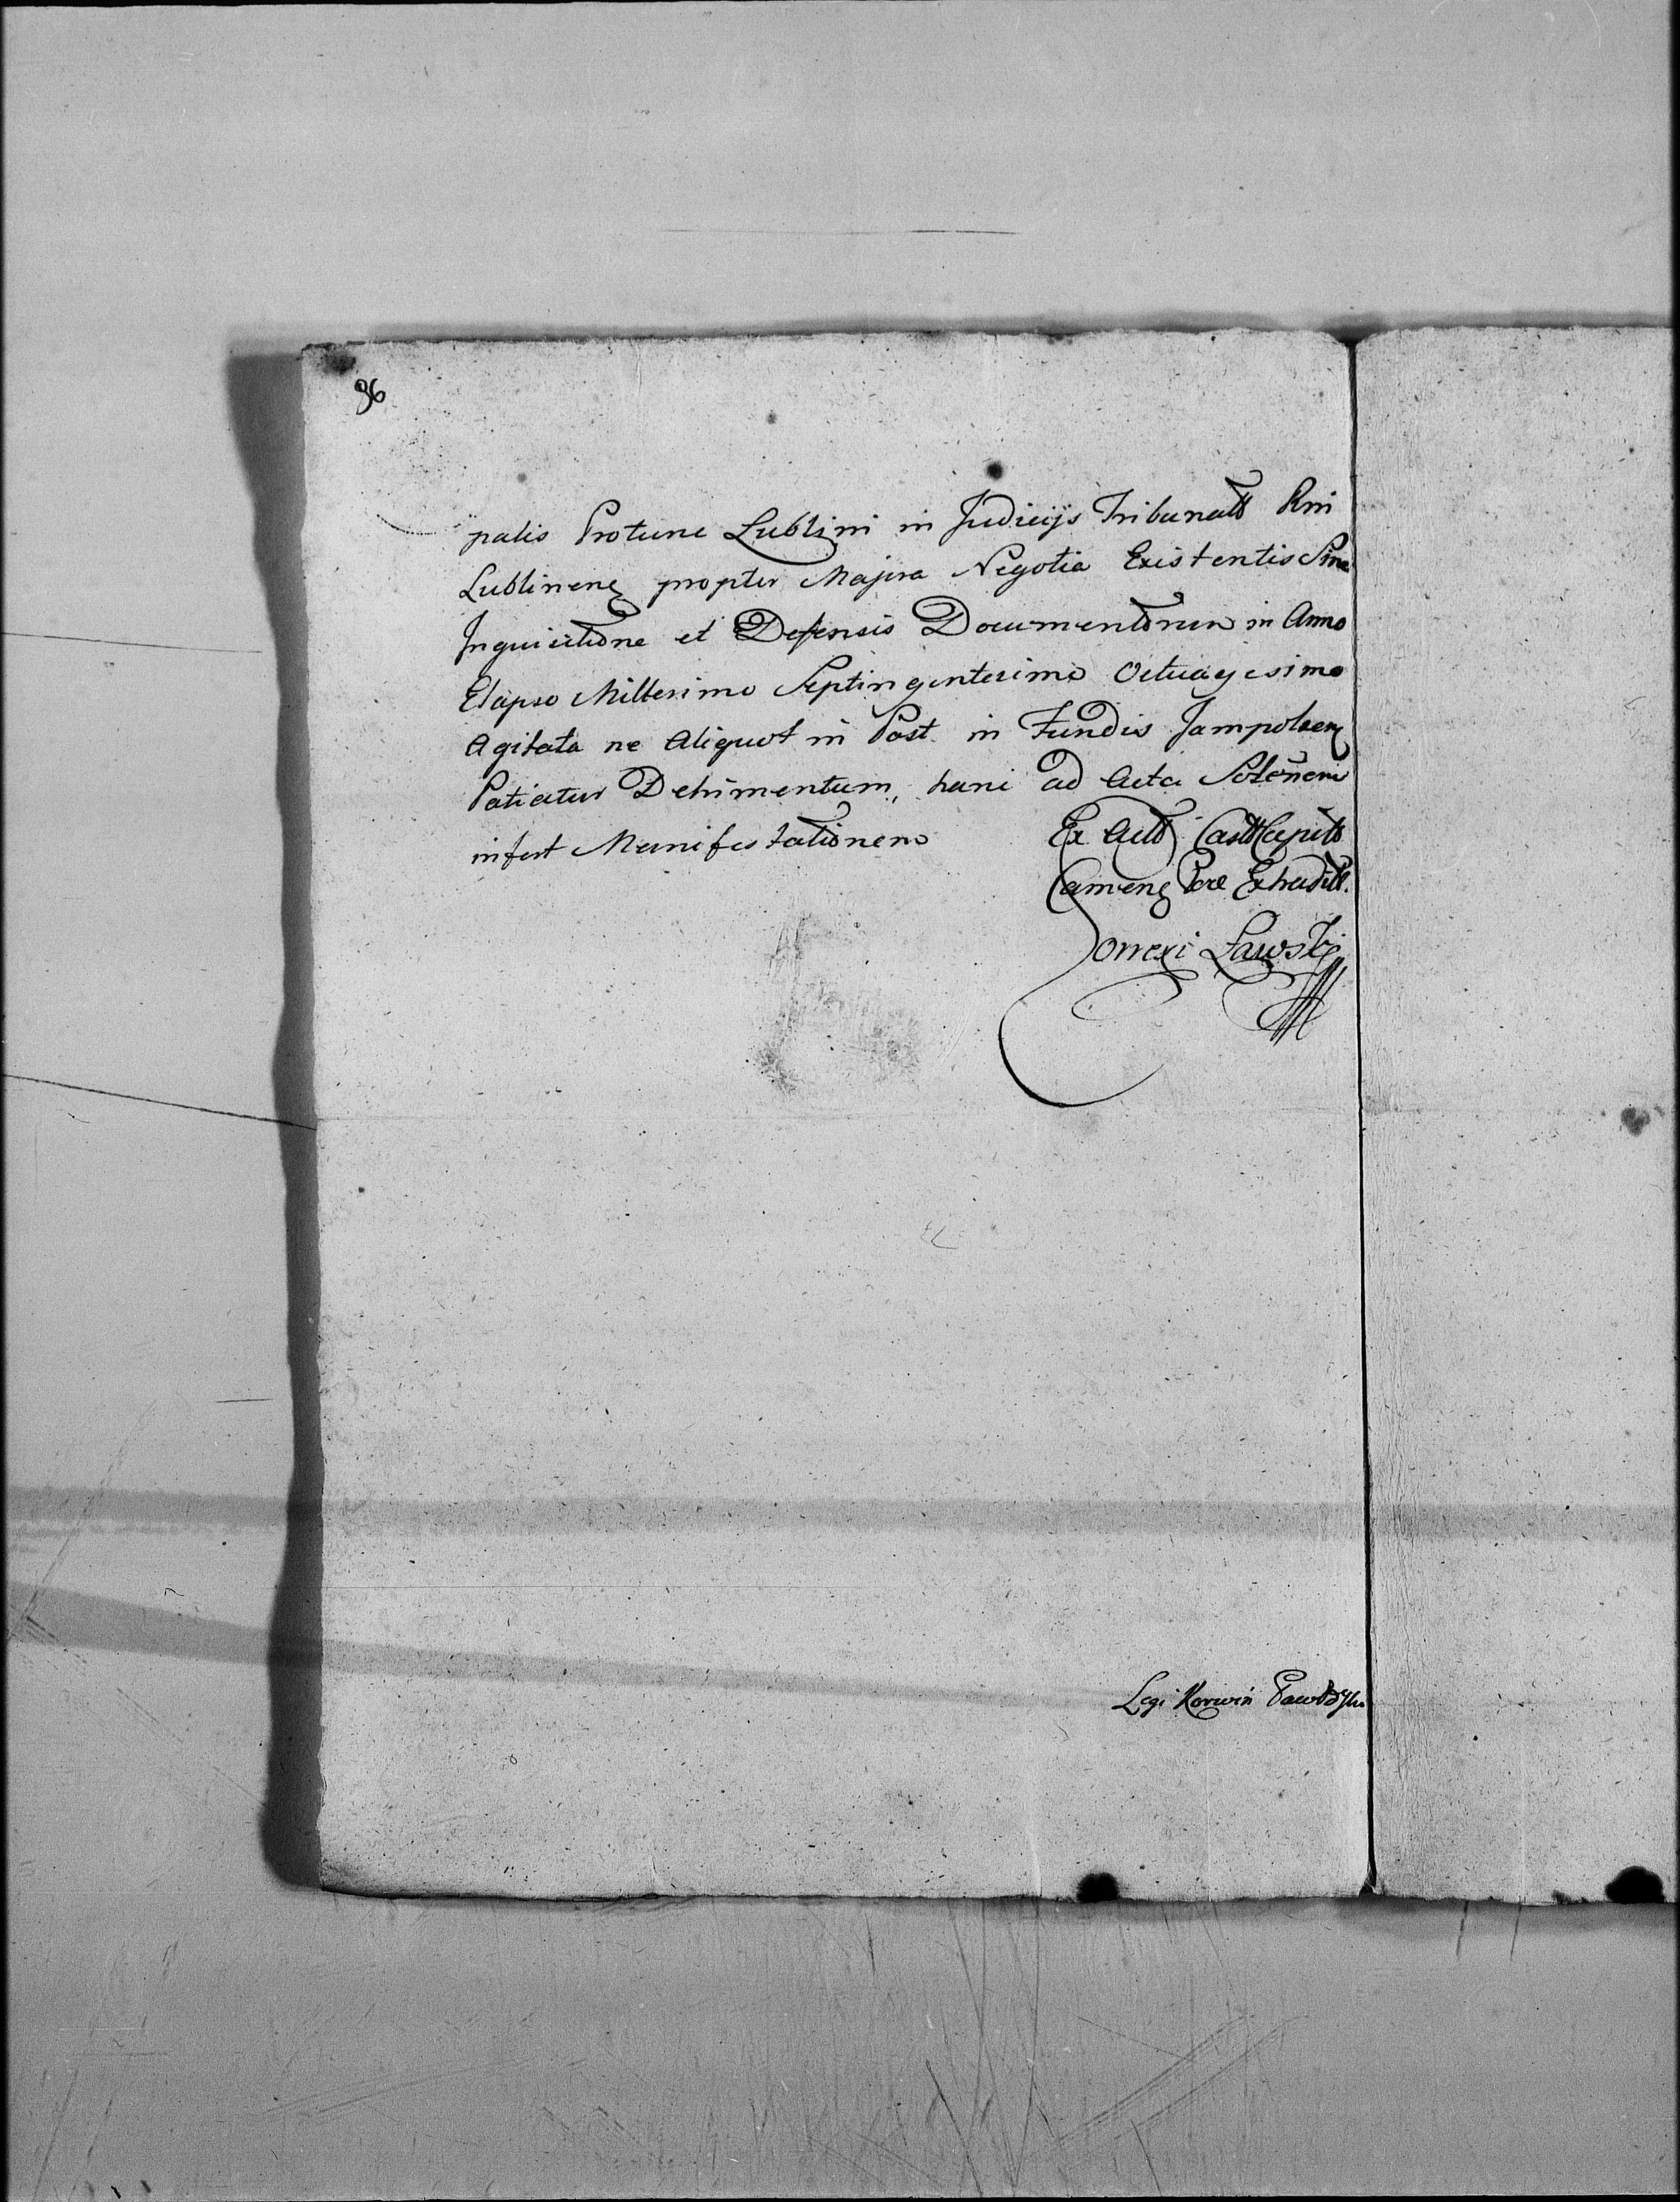 96
palis Protunc Lublini in Judicijs Tribunalb Rni
Lublinens propter Majora Negotia Existentis Sine
Inquisitione et Defensis Documentorum in Anno
Elapso Millesimo Septingentesimo Octuagesimo
Agitata ne Aliquot in Post in Fundis Jampolsens
Patiatur Detrimentum, hanc ad Acta Solenem
infert Manifestationem
Ex Actb Castb Capitb
Camenens Pore Extradittt.
Correxi Ławski
Legi Korwin